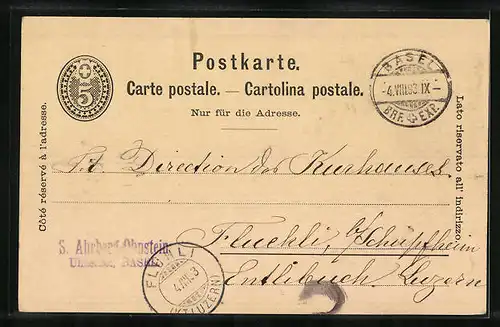 Postkarte.
Carte postale. — Cartolina postale.
Nur für die Adresse.
5
BASEL
-4.VIII.93.IX-
BRF. EXP.
Côté réservé à l'adresse.
Lato riservato all' indirizzo.
Tit. Direction des Kurhauses.
Fluehli, b/Schüpfheim
Entlibuch, Luzern
S.
BASEL
FLÜHLI
4.VIII.93
(KT. LUZERN)